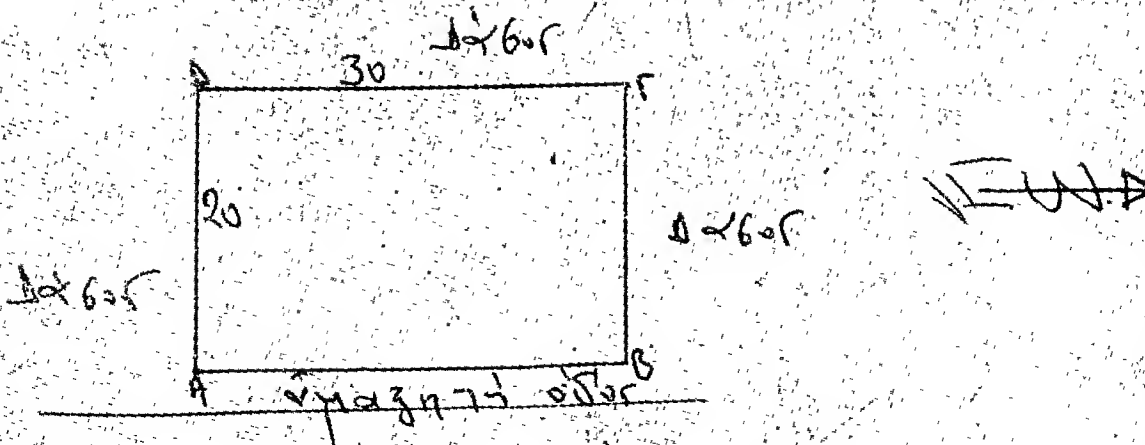 Δάσος
Δ 30 Γ
20
Δάσος
Δάσος
Α Β
ἁμαξητή ὁδός